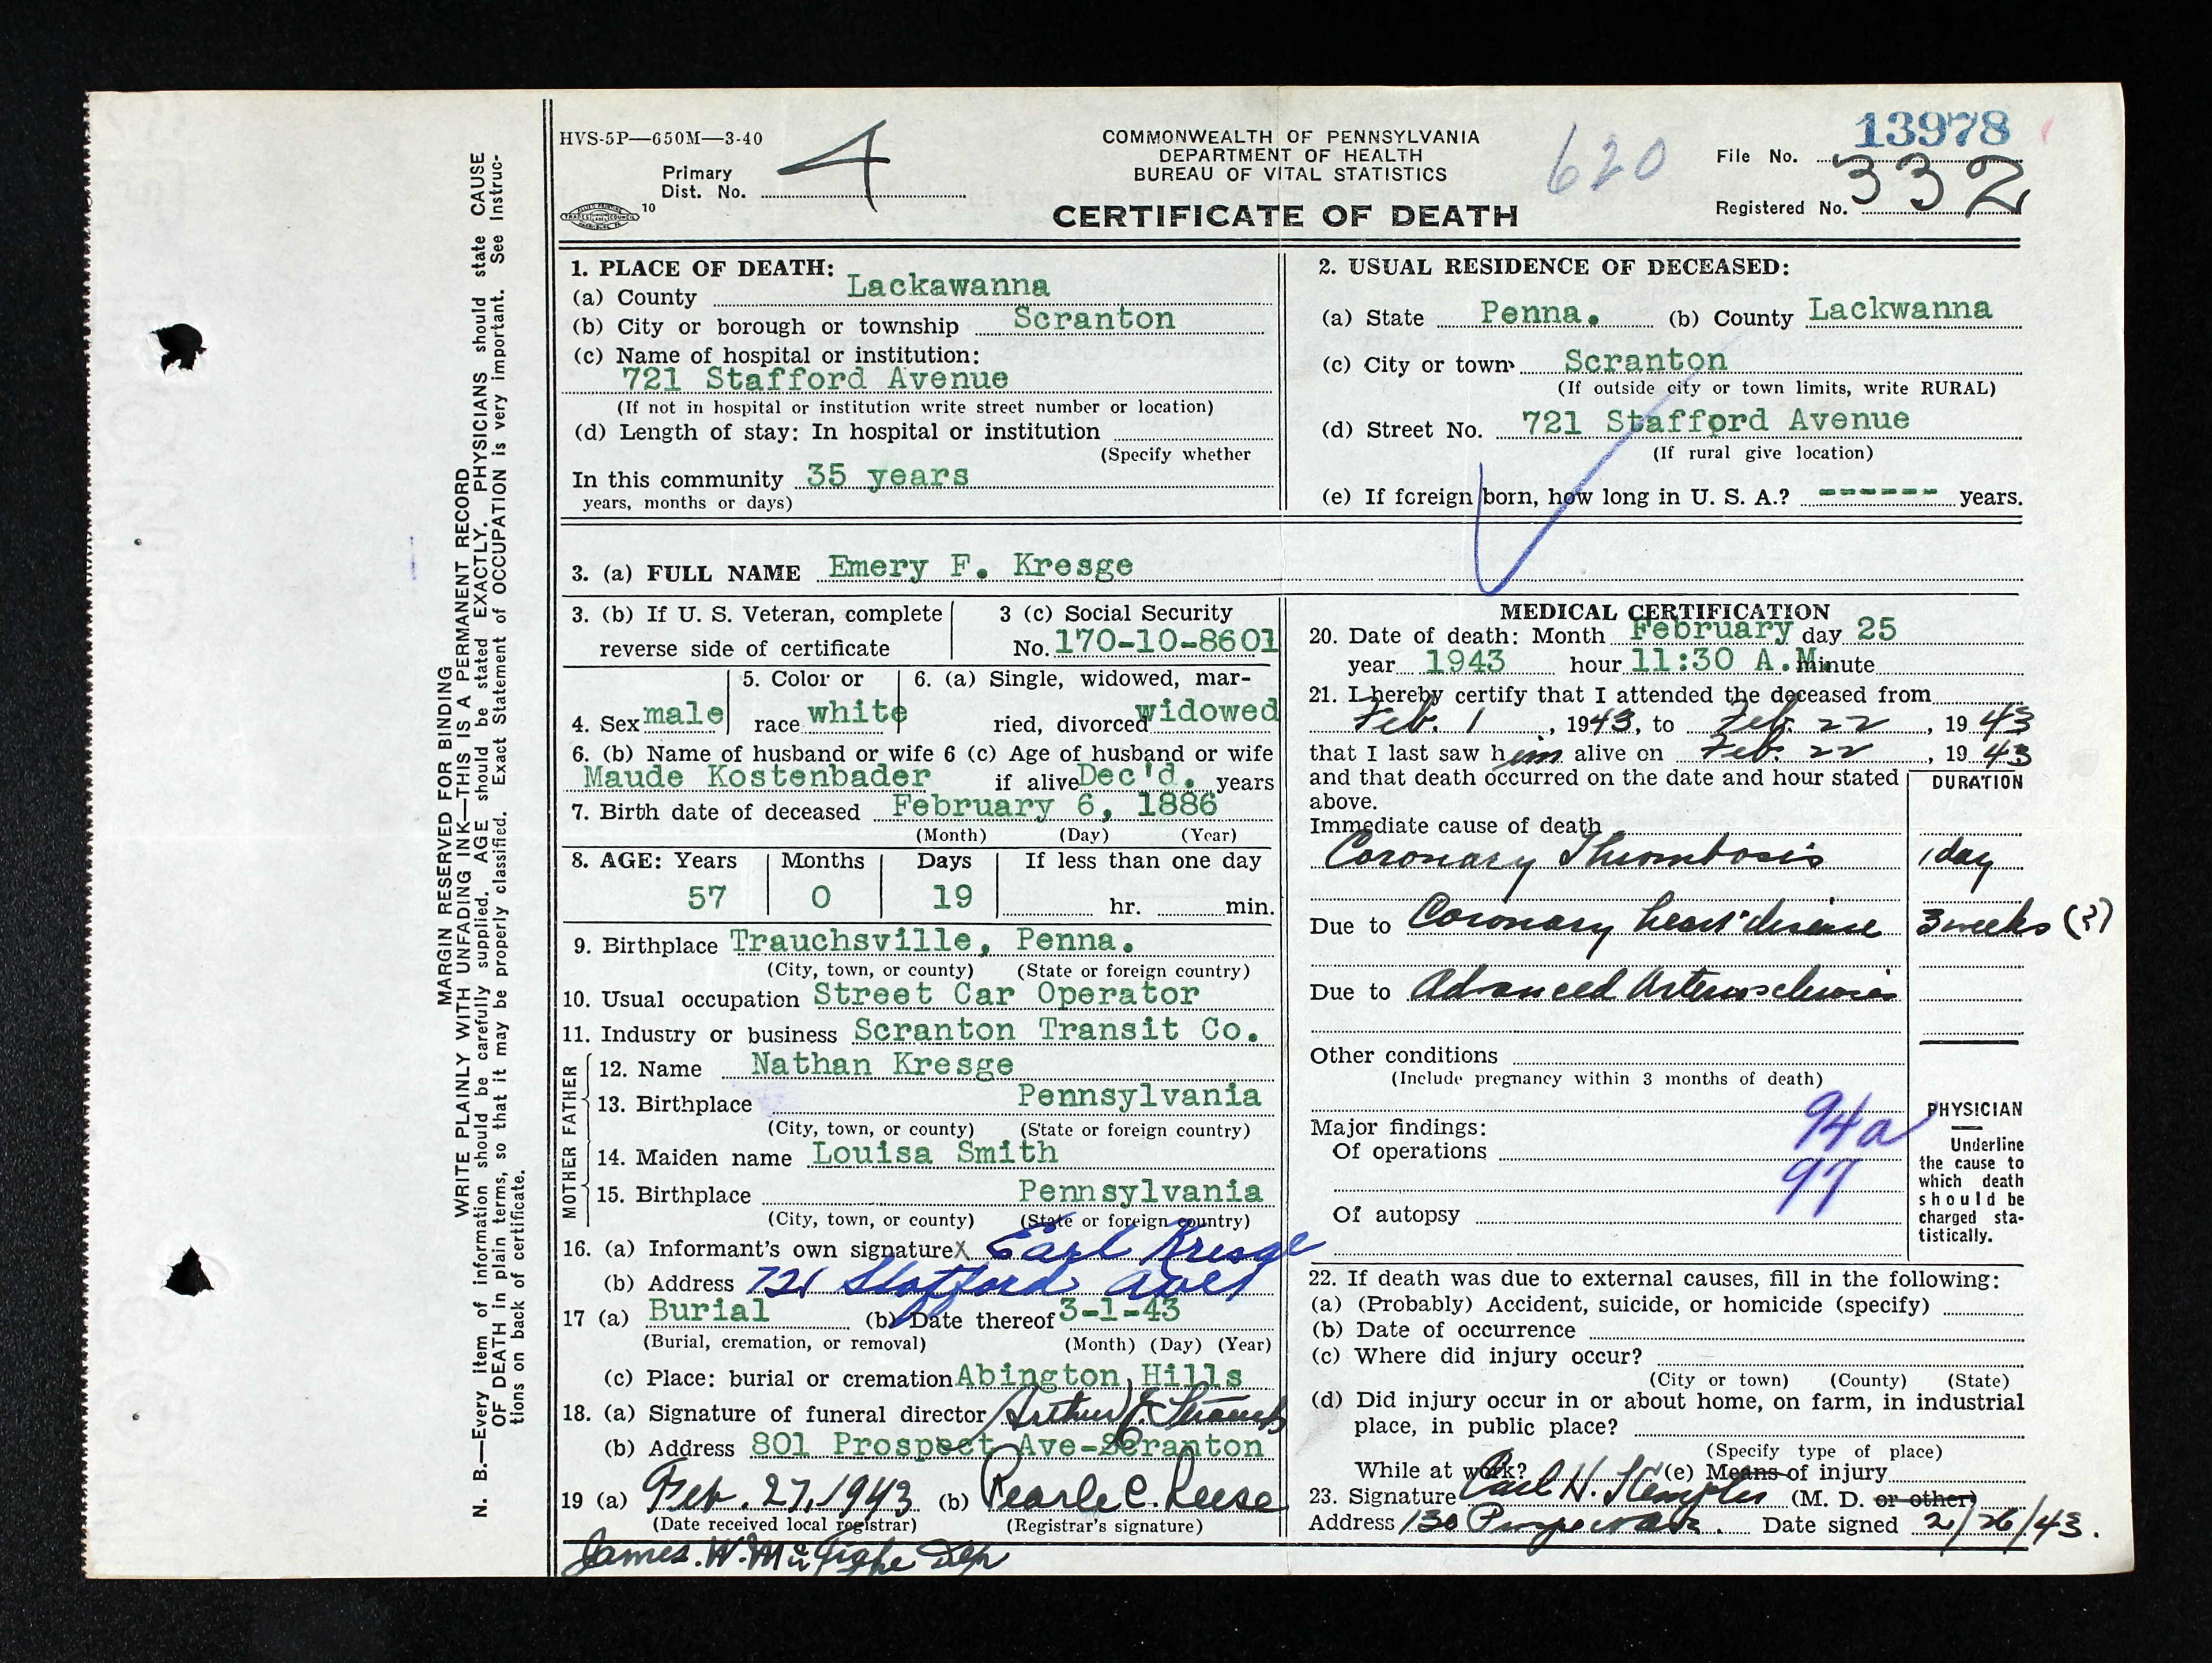 HVS-5P—650M—3-40
Primary
Dist. No. 4
10
COMMONWEALTH OF PENNSYLVANIA
DEPARTMENT OF HEALTH
BUREAU OF VITAL STATISTICS
CERTIFICATE OF DEATH
620
13978
File No.
Registered No. 332
MARGIN RESERVED FOR BINDING
WRITE PLAINLY WITH UNFADING INK—THIS IS A PERMANENT RECORD
N. B.—Every item of information should be carefully supplied. AGE should be stated EXACTLY. PHYSICIANS should state CAUSE
OF DEATH in plain terms, so that it may be properly classified. Exact Statement of OCCUPATION is very important. See Instruc-
tions on back of certificate.
1. PLACE OF DEATH:
(a) County Lackawanna
(b) City or borough or township Scranton
(c) Name of hospital or institution:
721 Stafford Avenue
(If not in hospital or institution write street number or location)
(d) Length of stay: In hospital or institution
(Specify whether
In this community 35 years
years, months or days)
2. USUAL RESIDENCE OF DECEASED:
(a) State Penna. (b) County Lackwanna
(c) City or town Scranton
(If outside city or town limits, write RURAL)
(d) Street No. 721 Stafford Avenue
(If rural give location)
(e) If foreign born, how long in U. S. A.? ------ years.
3. (a) FULL NAME Emery F. Kresge
3. (b) If U. S. Veteran, complete
reverse side of certificate
3 (c) Social Security
No. 170-10-8601
4. Sex male
5. Color or
race white
6. (a) Single, widowed, mar-
ried, divorced widowed
6. (b) Name of husband or wife 6 (c) Age of husband or wife
Maude Kostenbader if alive Dec'd. years
7. Birth date of deceased February 6, 1886
(Month) (Day) (Year)
8. AGE: Years Months Days If less than one day
57 0 19 hr. min.
9. Birthplace Trauchsville, Penna.
(City, town, or county) (State or foreign country)
10. Usual occupation Street Car Operator
11. Industry or business Scranton Transit Co.
FATHER
12. Name Nathan Kresge
13. Birthplace Pennsylvania
(City, town, or county) (State or foreign country)
MOTHER
14. Maiden name Louisa Smith
15. Birthplace Pennsylvania
(City, town, or county) (State or foreign country)
16. (a) Informant's own signature X Earl Kresge
(b) Address 721 Stafford Ave
17 (a) Burial (b) Date thereof 3-1-43
(Burial, cremation, or removal) (Month) (Day) (Year)
(c) Place: burial or cremation Abington Hills
18. (a) Signature of funeral director Arthur
(b) Address 801 Prospect Ave-Scranton
19 (a) Feb. 27, 1943 (b) Pearle C. Reese
(Date received local registrar) (Registrar's signature)
James. W. Dep
MEDICAL CERTIFICATION
20. Date of death: Month February day 25
year 1943 hour 11:30 A.M. minute
21. I hereby certify that I attended the deceased from
Feb. 1, 1943, to Feb. 22, 1943
that I last saw him alive on Feb. 22, 1943
and that death occurred on the date and hour stated
above.
DURATION
Immediate cause of death
Coronary Thrombosis 1 day
Due to Coronary heart disease 3 weeks (?)
Due to Advanced Arteriosclerosis
Other conditions
(Include pregnancy within 3 months of death)
94a
97
Major findings:
Of operations
Of autopsy
PHYSICIAN
Underline
the cause to
which death
should be
charged sta-
tistically.
22. If death was due to external causes, fill in the following:
(a) (Probably) Accident, suicide, or homicide (specify)
(b) Date of occurrence
(c) Where did injury occur?
(City or town) (County) (State)
(d) Did injury occur in or about home, on farm, in industrial
place, in public place?
(Specify type of place)
While at work? (e) Means of injury
23. Signature Carl H. (M. D. or other)
Address 130 Date signed 2/26/43.